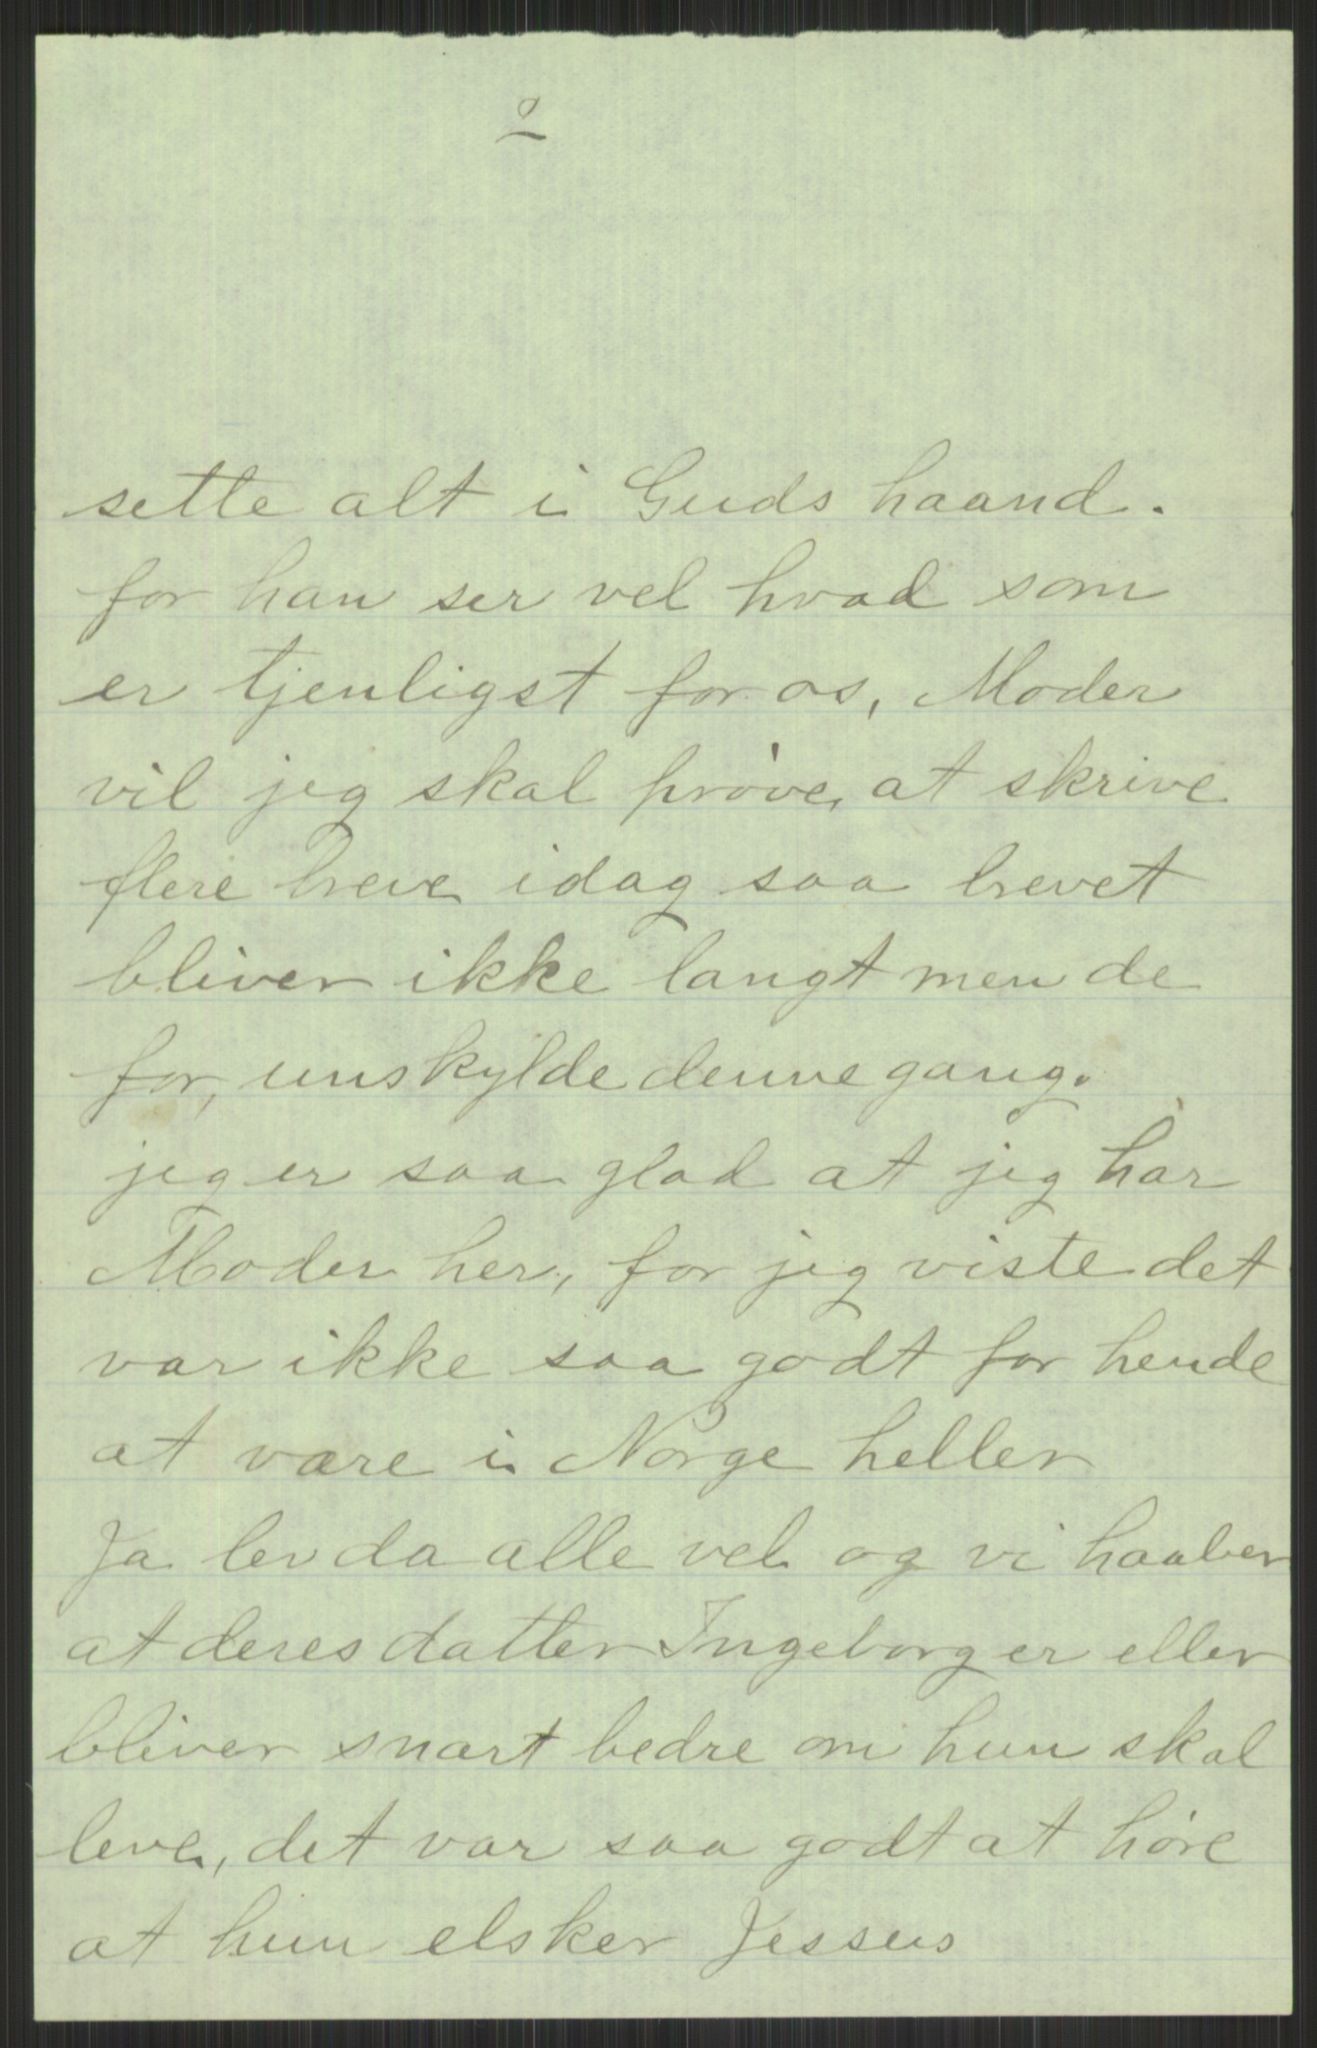 2
sette alt i Guds haand.
for han ser vel hvad som
er tjenligst for os, Moder
vil jeg skal pröve, at skrive
flere breve idag saa brevet
bliver ikke langt men de
for, unskylde denne gang.
jeg er saa glad at jeg har
Moder her, for jeg viste det
var ikke saa godt for hende
at være i Norge heller
Ja lev da alle vel og vi haaber
at deres datter Ingeborg er eller
bliver snart bedre om hun skal
leve, det var saa godt at höre
at hun elsker Jessus